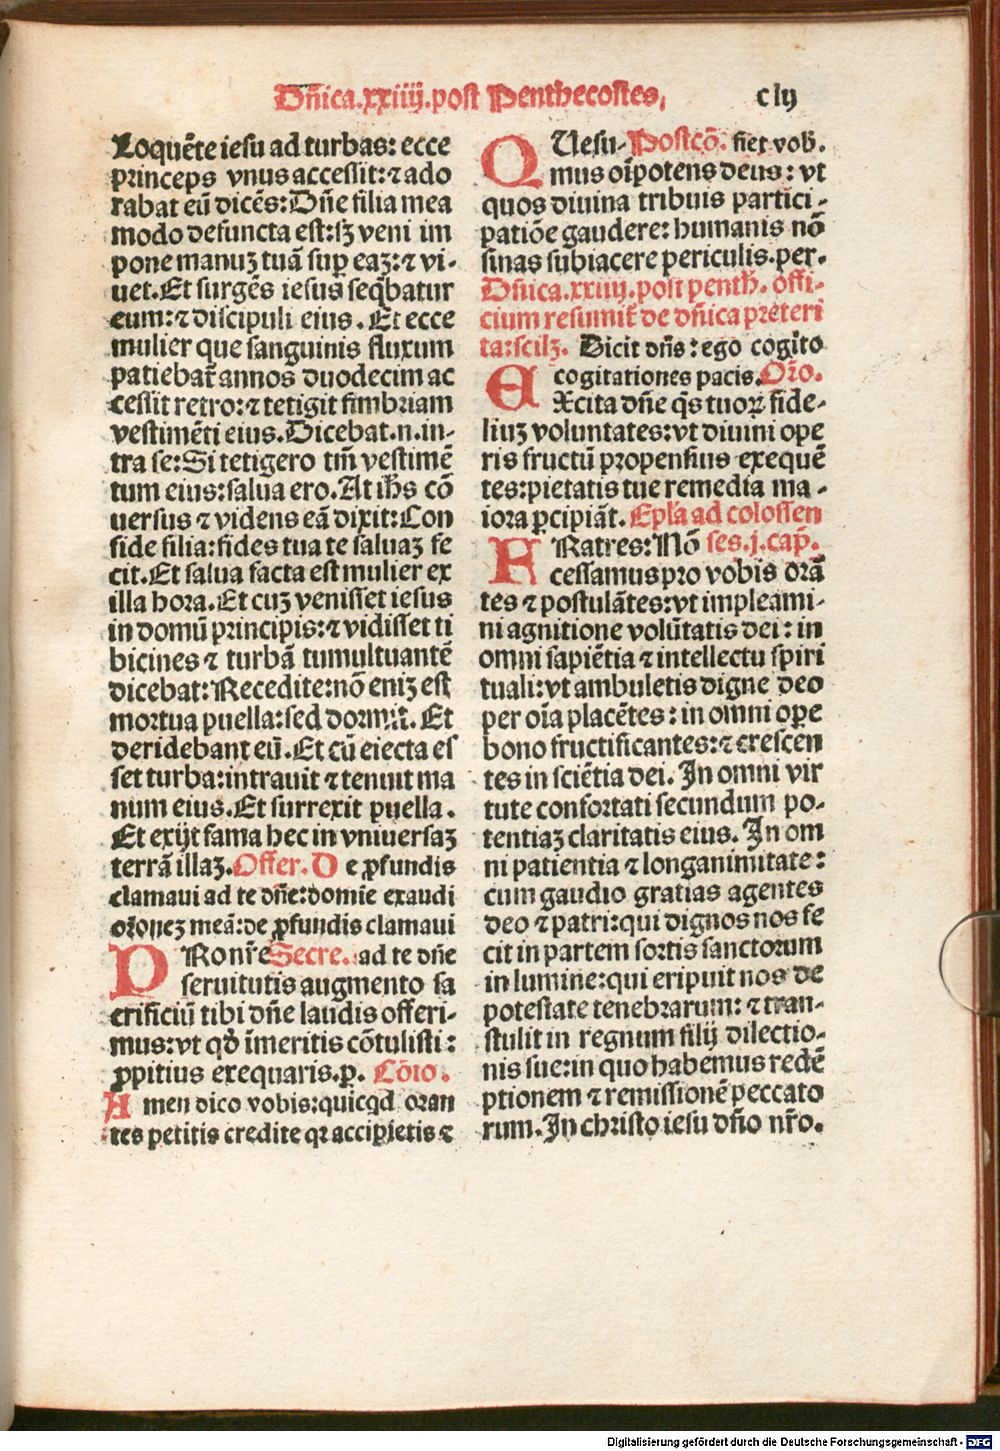 Dn̄ica.xxiiij.post Penthecostes,
clij
Loquēte iesu ad turbas: ecce
princeps vnus accessit: ⁊ ado
rabat eū dicēs: Dn̄e filia mea
modo defuncta est: sꝫ veni im
pone manuꝫ tuā suꝑ eaꝫ: ⁊ vi⸗
uet. Et surgēs iesus seq̄batur
eum: ⁊ discipuli eius. Et ecce
mulier que sanguinis fluxum
patiebat᷑ annos duodecim ac
cessit retro: ⁊ tetigit fimbriam
vestimēti eius. Dicebat.n. in⸗
tra se: Si tetigero tm̄ vestimē
tum eius: salua ero. At ih̄s cō
uersus ⁊ videns eā dixit: Con
fide filia: fides tua te saluaꝫ fe
cit. Et salua facta est mulier ex
illa hora. Et cuꝫ venisset iesus
in domū principis: ⁊ vidisset ti
bicines ⁊ turbā tumultuantē
dicebat: Recedite: nō eniꝫ est
mortua puella: sed dormit. Et
deridebant eū. Et cū eiecta es
set turba: intrauit ⁊ tenuit ma
num eius. Et surrexit puella.
Et exijt fama hec in vniuersaꝫ
terrā illaꝫ. Offer. De ꝓfundis
clamaui ad te dn̄e: domie exaudi
or̄oneꝫ meā: de ꝓfundis clamaui
PRo nr̄e Secre. ad te dn̄e
seruitutis augmento sa
crificiū tibi dn̄e laudis offeri⸗
mus: vt qđ īmeritis cōtulisti:
ꝓpitius exequaris. ꝑ. Cōio.
Amen dico vobis: quicqd oran
tes petitis credite qꝛ accipietis ⁊
QUesu⸗ Postcō. fiet vob̄.
mus oīpotens deus: vt
quos diuina tribuis partici⸗
patiōe gaudere: humanis nō
sinas subiacere periculis. per.
Dn̄ica.xxiiij.post penth̄. offi⸗
cium resumit᷑ de dn̄ica preteri
ta: scilꝫ. Dicit dn̄s: ego cogito
cogitationes pacis. Or̄o.
EXcita dn̄e q̄s tuoꝝ fide⸗
liuꝫ voluntates: vt diuini ope
ris fructū propensius exequē
tes: pietatis tue remedia ma⸗
iora ꝑcipiāt. Epl̄a ad colossen
FRatres: Nō ses.j.cap̄.
cessamus pro vobis orā
tes ⁊ postulātes: vt impleami⸗
ni agnitione volūtatis dei: in
omni sapiētia ⁊ intellectu spiri
tuali: vt ambuletis digne deo
per oīa placētes: in omni oꝑe
bono fructificantes: ⁊ crescen
tes in sciētia dei. In omni vir
tute confortati secundum po⸗
tentiaꝫ claritatis eius. In om
ni patientia ⁊ longanimitate:
cum gaudio gratias agentes
deo ⁊ patri: qui dignos nos fe
cit in partem sortis sanctorum
in lumine: qui eripuit nos de
potestate tenebrarum: ⁊ tran⸗
stulit in regnum filij dilectio⸗
nis sue: in quo habemus redē
ptionem ⁊ remissionē peccato
rum. In christo iesu dn̄o nr̄o.
Digitalisierung gefördert durch die Deutsche Forschungsgemeinschaft - DFG